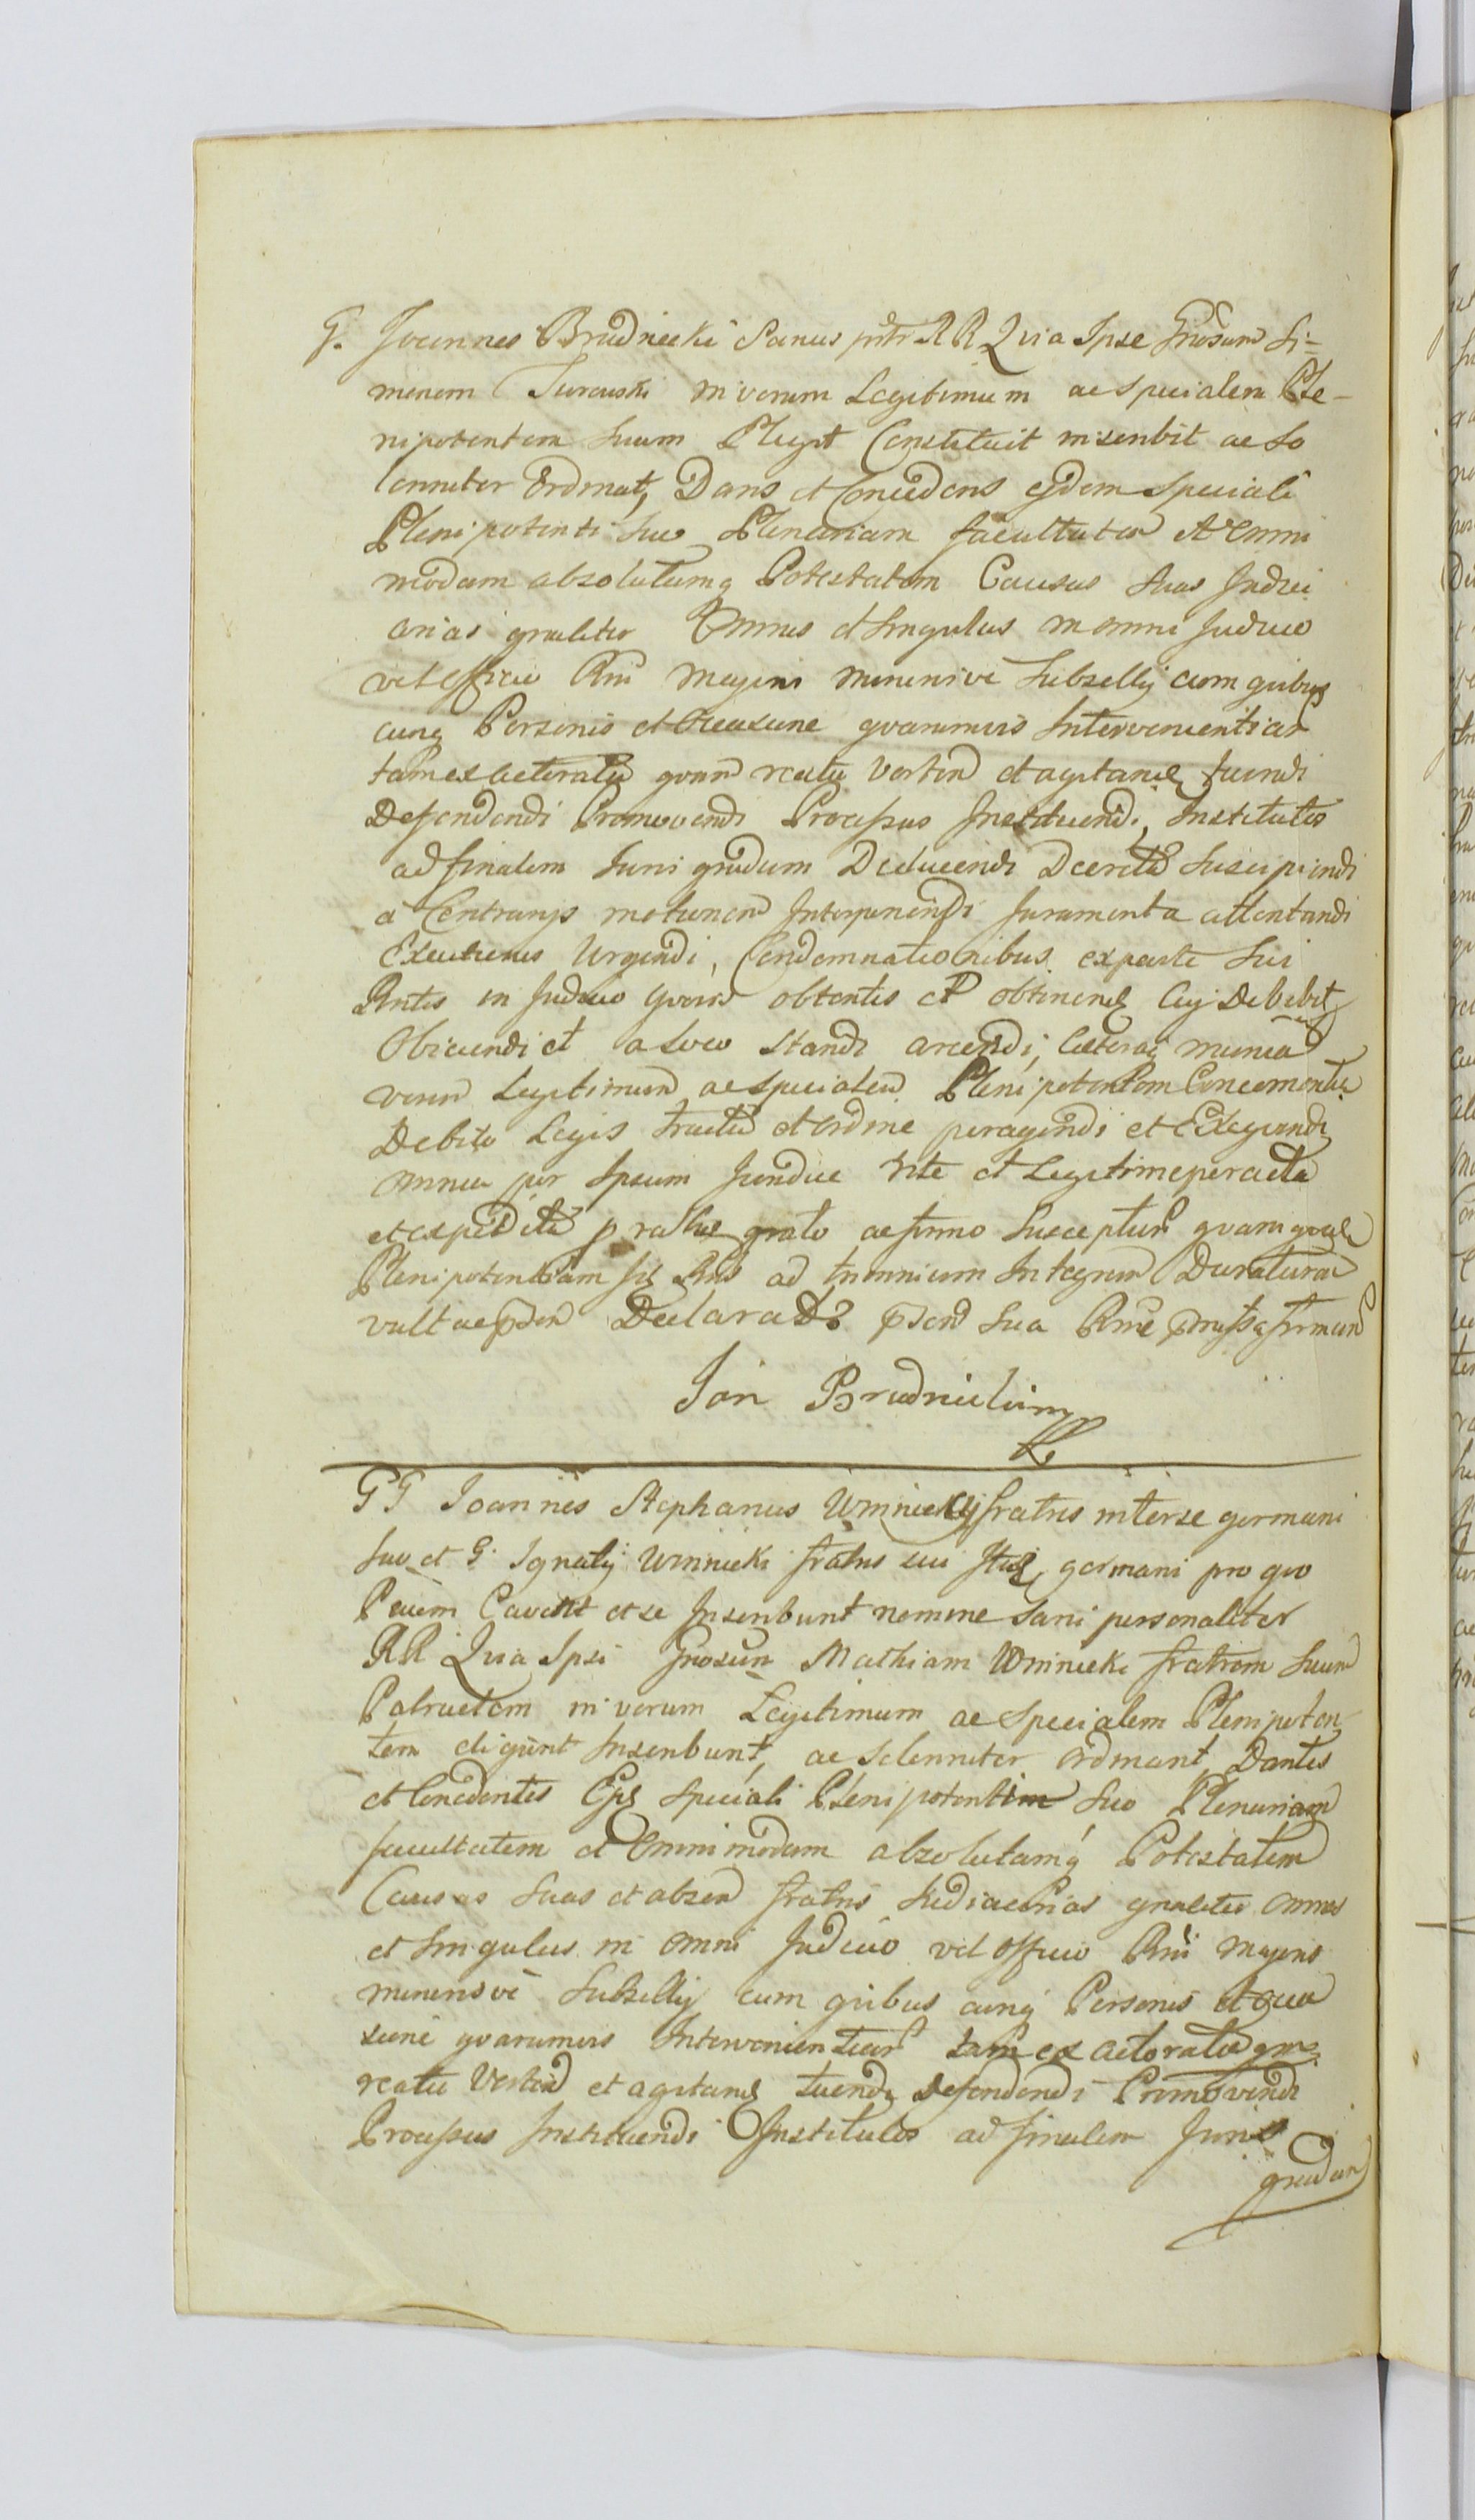 G. Joannes Brudnicki Sanus pntr RR Quia Ipse Gnosum Si=
meonem Turowski in verum Legitimum ac specialem Ple-
nipotentem suum Elegit Constituit inscribit ac So
lenniter Ordinat, Dans et Concedens ejdem speciali
Plenipotenti suo Plenariam facultatem et omni
modam absolutamq Potestatem Causas suas Judici
arias gnaliter Omnes et singulas in omni Judicio
vel officio Rni Majoris minorisve Subsellij cum quibus
cunq Personis et Occasione quarumvis Intervenientiar
tam ex actoratu quam reatu verten et agitand tuendi
Defendendi Promovendi Processus Instituendi, Institutos
ad finalem Juris gradum Deducendi Decreta Suscipiendi
a Contrarys motionem Interponendi Juramenta attentandi
Executiones Urgendi, Condemnationibus ex parte sui
Pntis in Judicio quovis obtentis et obtinend Cuj Debebit
Obiciendi et a loco standi arcendi, Coeteraq munia
verum Legitimum ac specialem Plenipotentem Concernentia
Debito Legis tractu et ordine peragendi et Exequendi
omnia per Ipsum Juridice rite et Legitime peracta
et expedita p rato grato ac firmo Suscepturus quam quid
Plenipotentiam ad triennium Integrum Duraturam
vult ac Declarat sua firmam
Jan Brudnicki mp
GG Joannes Stephanus Winnicky fratres inter se germani
suo et G. Ignatij Winnicki fratris sui germani pro quo
Cavent et se Inscribunt nomine Sani personaliter
RR Quia Ipsi Gnosum Mathiam Winnicki fratrem suum
Patruelem in verum Legitimum ac specialem Plenipoten
tem eligunt Inscribunt, ac solenniter ordinant, Dantes
et Concedentes Ejd speciali Plenipotenti suo Plenariam
facultatem et omnimodam absolutamq Potestatem
Causas suas et absen fratris Judiciarias gnaliter omnes
et singulas in omni Judicio vel officio Rni Majoris
minorisve Subsellij cum quibus cunq Personis et occa
sione quarumvis Intervenientiar tam ex actoratu qm
reatu verten et agitand tuendi Defendendi Promovendi
Processus Instituendi Institutos ad finalem Juris
gradum